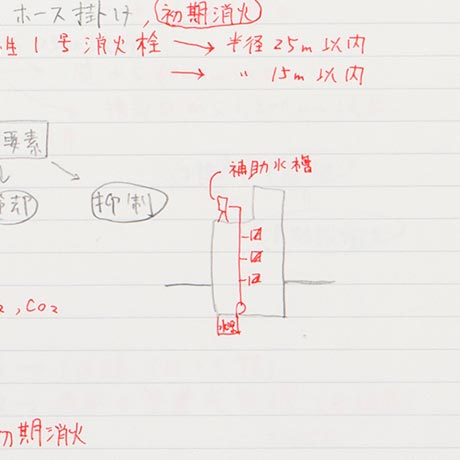 ホース掛け, 初期消火
性1号消火栓 → 半径25m以内
→ 〃 15m以内
要素
冷却 抑制
補助水槽
, CO₂
水槽
初期消火